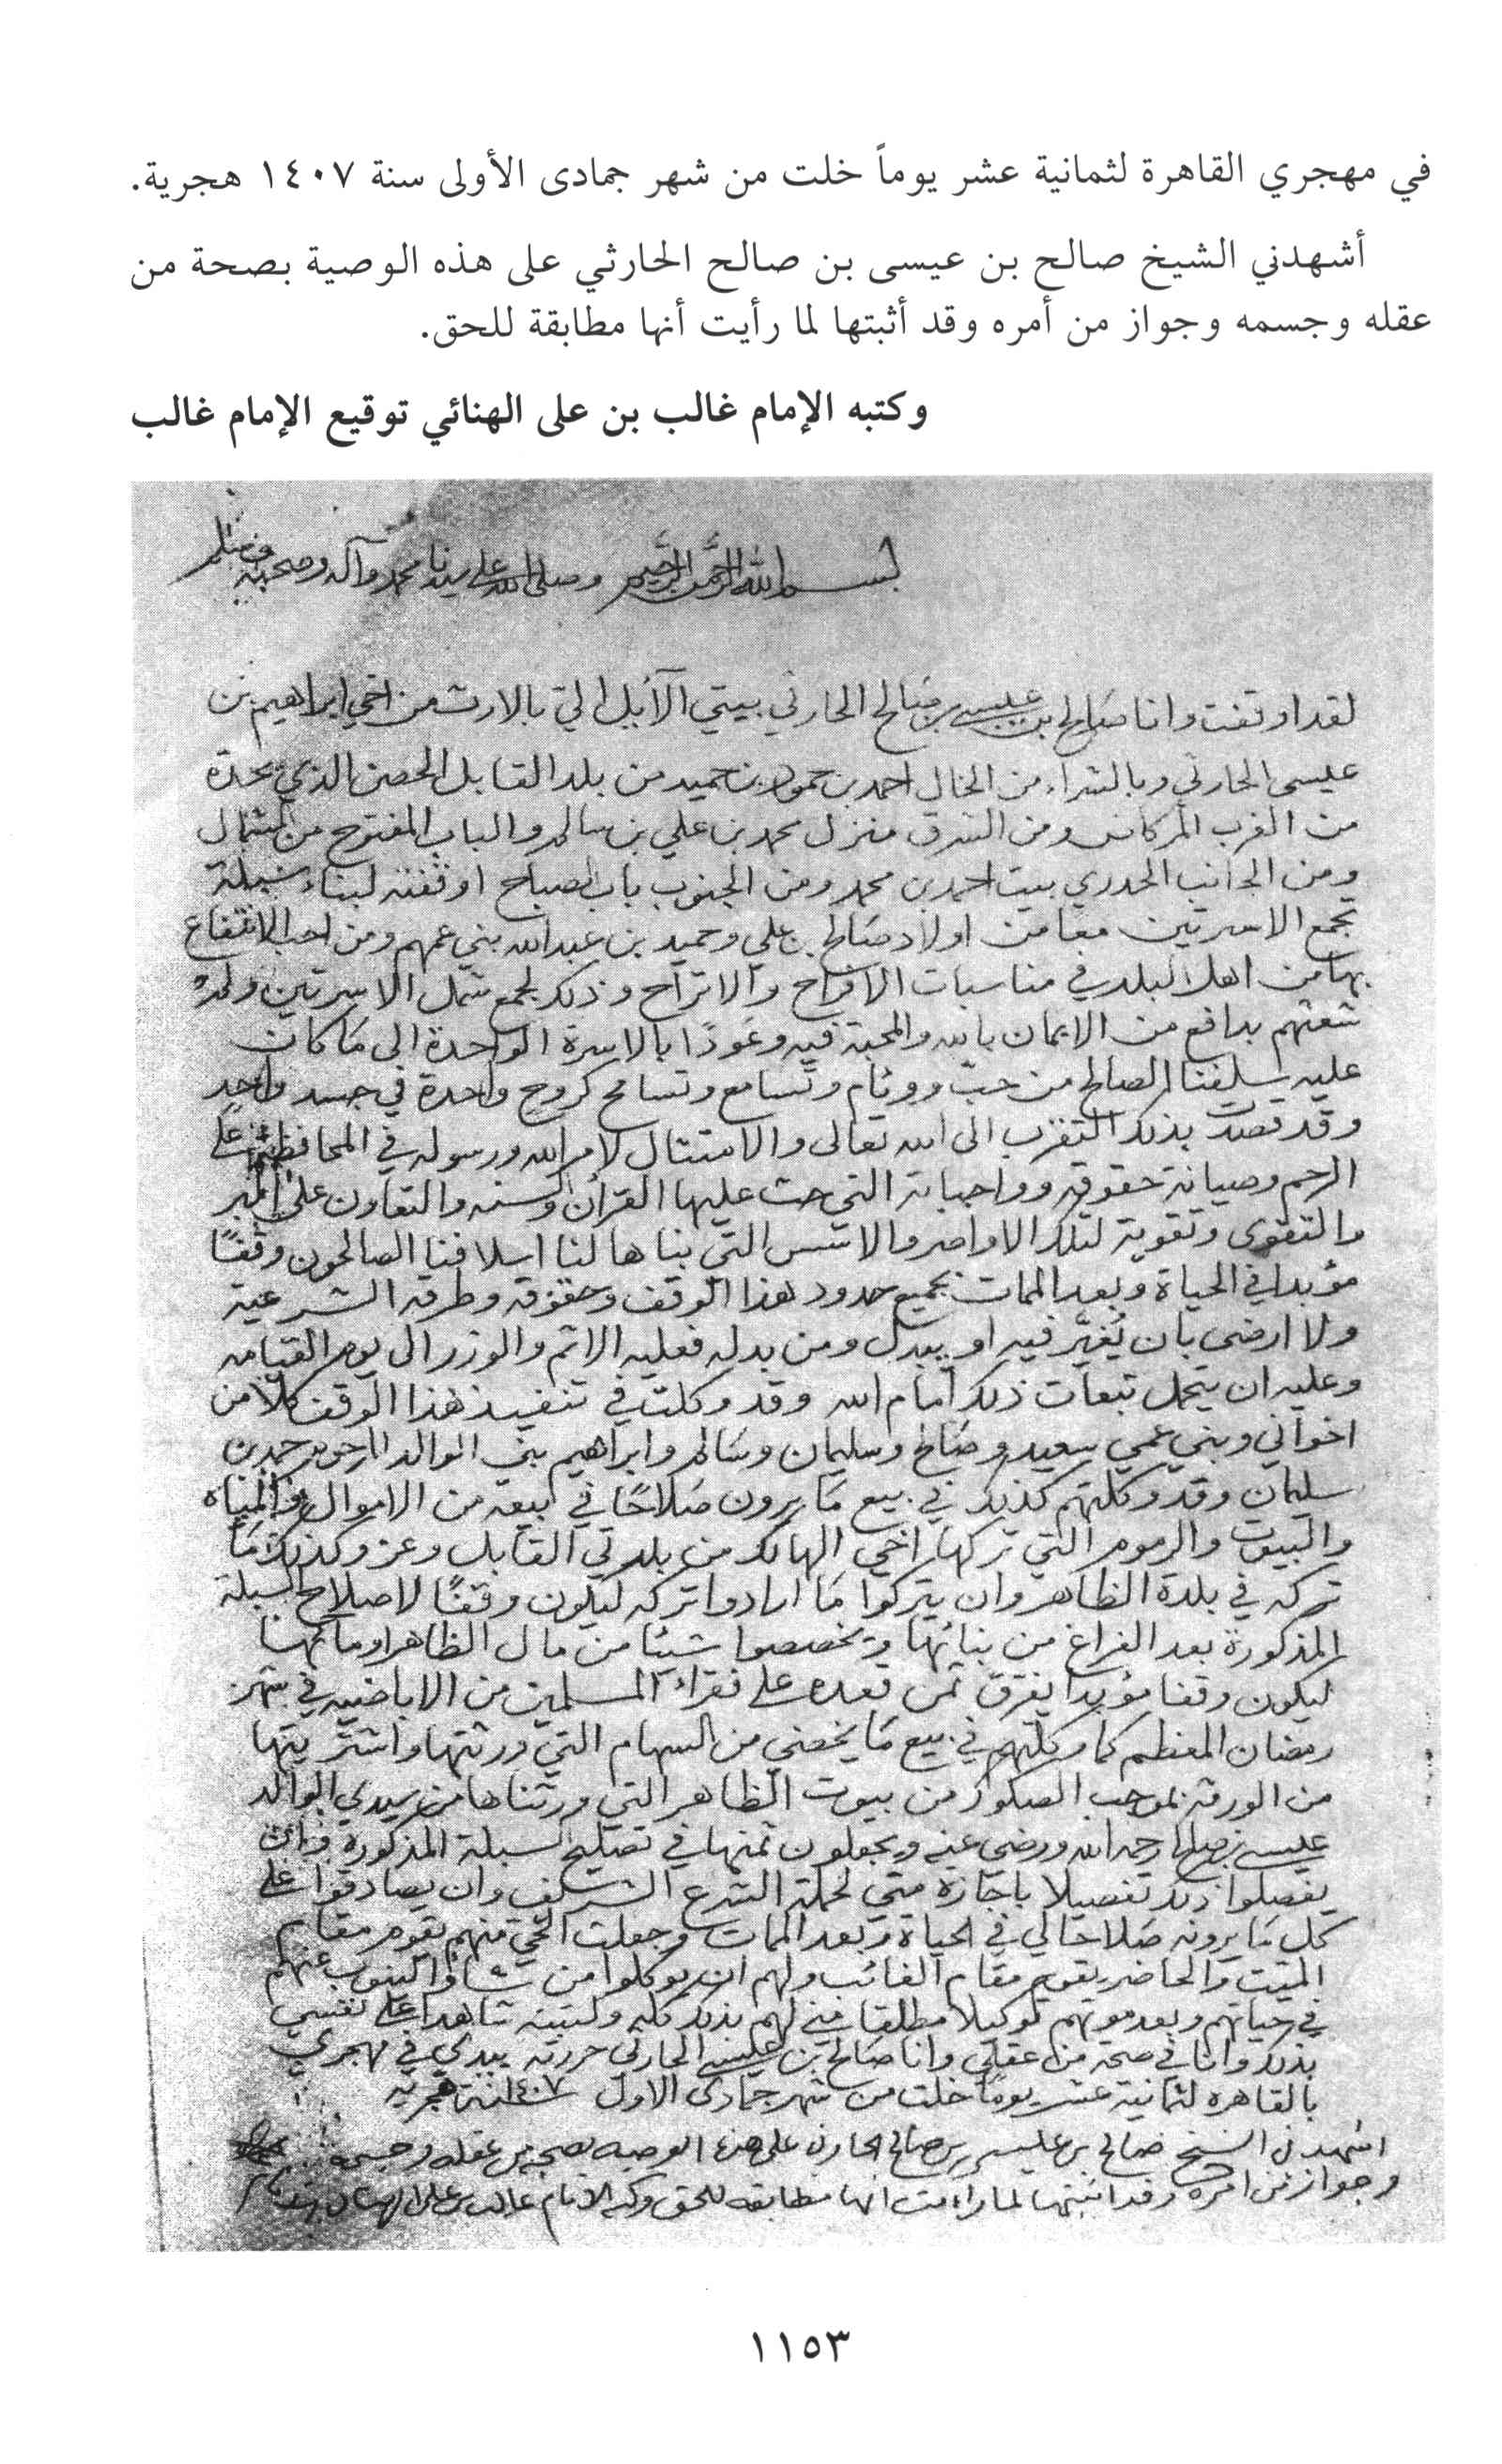 في مهجري القاهرة لثمانية عشر يوماً خلت من شهر جمادى الأولى سنة ١٤٠٧ هجرية.
أشهدني الشيخ صالح بن عيسى بن صالح الحارثي على هذه الوصية بصحة من
عقله وجسمه وجواز من أمره وقد أثبتها لما رأيت أنها مطابقة للحق.
وكتبه الإمام غالب بن على الهنائي توقيع الإمام غالب
بسم الله الرحمن الرحيم وصلى الله على سيدنا محمد وآله وصحبه وسلم
لقد اوقفت وانا صالح بن عيسى بن صالح الحارثي بيتي الآئل الي بالارث من اخي ابراهيم بن
عيسى الحارثي وبالشراء من الخال احمد بن حمود بن حميد من بلد القابل الحصن الذي يحده
من الغرب المركاض ومن الشرق منزل محمد بن علي بن سالم والباب المفتوح من الشمال
ومن الجانب الحدري بيت احمد بن محمد ومن الجنوب باب الصباح اوقفته لبناء سبلة
تجمع الاسرتين معا من اولاد صالح بن علي وحميد بن عبدالله بني عمهم ومن احب الانتفاع
بها من اهل البلد في مناسبات الافراح والاتراح وذلك لجمع شمل الاسرتين ولم
شعثهم بدافع من الايمان بالله والمحبة فيه وعودًا بالاسرة الواحدة الى ما كان
عليه سلفنا الصالح من حب ووئام وتسامع وتسامح كروح واحدة في جسد واحد
وقد قصدت بذلك التقرب الى الله تعالى والامتثال لامر الله ورسوله في المحافظة على
الرحم وصيانة حقوقه وواجباته التي حث عليها القرآن والسنه والتعاون على البر
والتقوى وتقوية لتلك الاواصر والاسس التي بناها لنا اسلافنا الصالحون وقفًا
مؤبدا في الحياة وبعد الممات بجميع حدود هذا الوقف وحقوقه وطرقه الشرعية
ولا ارضى بان يُغيَّر فيه او يبدل ومن بدله فعليه الاثم والوزر الى يوم القيامه
وعليه ان يتحمل تبعات ذلك أمام الله وقد وكلت في تنفيذ هذا الوقف كلا من
اخواني وبني عمي سعيد وصالح وسليمان وسالم وابراهيم بني الوالد المرحوم حمد بن
سليمان وقد وكلتهم كذلك في بيع ما يرون صلاحًا في بيعه من الاموال والمياه
والبيوت والرموم التي تركها اخي الهالك من بلدتي القابل وعز وكذلك ما
تركه في بلدة الظاهر وان يتركوا ما ارادوا تركه ليكون وقفًا لاصلاح السبلة
المذكورة بعد الفراغ من بنائها ويخصصوا شيئا من مال الظاهر او مائها
ليكون وقفا مؤبدا يفرق ثمن قعده على فقراء المسلمين من الاباضيه في شهر
رمضان المعظم كما وكلتهم في بيع ما يخصني من السهام التي ورثتها واشتريتها
من الورثة بموجب الصكوك من بيوت الظاهر التي ورثناها من سيدي الوالد
عيسى بن صالح رحمه الله ورضي عنه ويجعلون ثمنها في تصليح السبلة المذكورة وان
يفصلوا ذلك تفصيلا باجازة مني لحملة الشرع الشريف وان يصادقوا على
كل ما يرونه صلاحا لي في الحياة وبعد الممات وجعلت الحي منهم يقوم مقام
الميت والحاضر يقوم مقام الغائب ولهم ان يوكلوا من شاؤا لينوب عنهم
في حياتهم وبعد موتهم توكيلا مطلقا مني لهم بذلك كله وكتبته شاهدا على نفسي
بذلك وانا في صحة من عقلي وانا صالح بن عيسى الحارثي حررته بيدي في مهجري
بالقاهره لثمانية عشر يوما خلت من شهر جمادى الاول ١٤٠٧ سنة هجريه
اشهدني الشيخ صالح بن عيسى بن صالح الحارثي على هذه الوصيه بصحه من عقله وجسمه
وجواز من امره وقد اثبتها لما رايت انها مطابقه للحق وكتبه الامام غالب بن على الهنائي بيده
١١٥٣